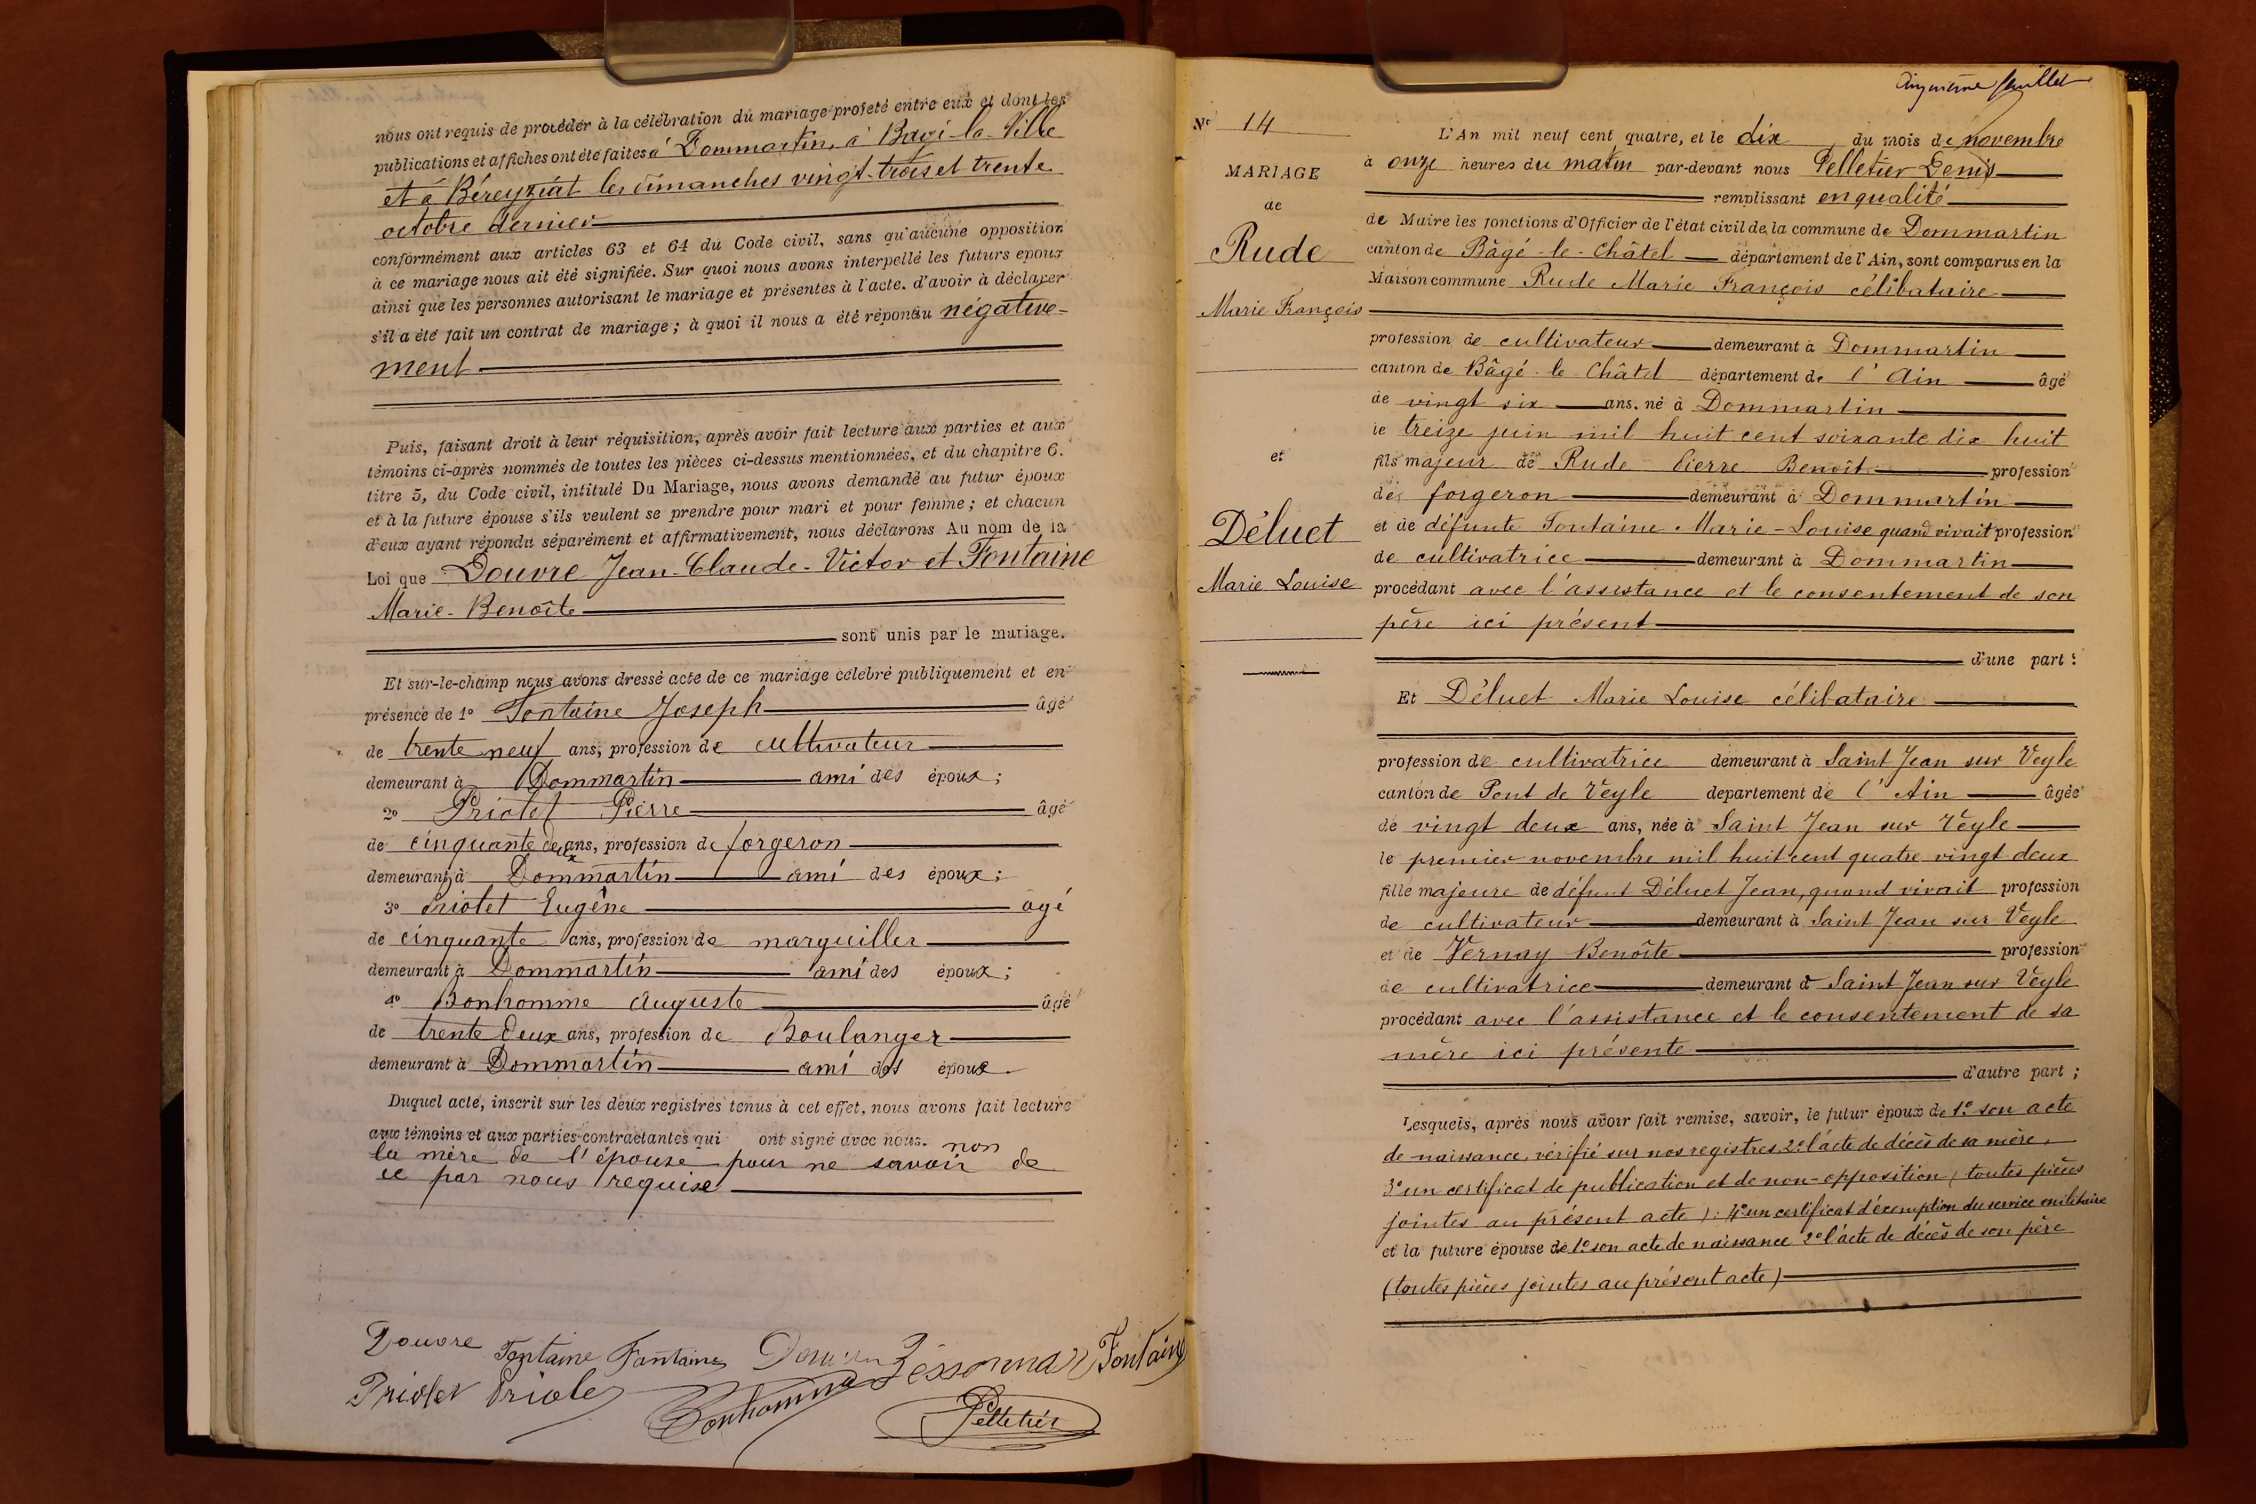 nous ont requis de procéder à la célébration du mariage projeté entre eux et dont les
publications et affiches ont été faites à Dommartin, à Bagé-la-Ville
et à Béreyziat les dimanches vingt-trois et trente
octobre dernier
conformément aux articles 63 et 64 du Code civil, sans qu'aucune opposition
à ce mariage nous ait été signifiée. Sur quoi nous avons interpellé les futurs epoux
ainsi que les personnes autorisant le mariage et présentes à l'acte. d'avoir à déclarer
s'il a été fait un contrat de mariage ; à quoi il nous a été répondu négative-
ment
Puis, faisant droit à leur réquisition, après avoir fait lecture aux parties et aux
témoins ci-après nommés de toutes les pièces ci-dessus mentionnées, et du chapitre 6.
titre 5, du Code civil, intitulé Du Mariage, nous avons demandé au futur époux
et à la future épouse s'ils veulent se prendre pour mari et pour femme ; et chacun
d'eux ayant répondu séparément et affirmativement, nous déclarons Au nom de la
Loi que Douvre Jean-Claude-Victor et Fontaine
Marie-Benoîte
sont unis par le mariage.
Et sur-le-champ nous avons dressé acte de ce mariage célébré publiquement et en
présence de 1° Fontaine Joseph âgé
de trente neuf ans, profession de cultivateur
demeurant à Dommartin ami des époux ;
2° Priolet Pierre âgé
de cinquante deux ans, profession de forgeron
demeurant à Dommartin ami des époux ;
3° Priolet Eugène âgé
de cinquante ans, profession de marguiller
demeurant à Dommartin ami des époux ;
4° Bonhomme Auguste âgé
de trente deux ans, profession de Boulanger
demeurant à Dommartin ami des époux
Duquel acte, inscrit sur les deux registres tenus à cet effet, nous avons fait lecture
aux témoins et aux parties contractantes qui ont signé avec nous. non
la mère de l'épouse pour ne savoir de
ce par nous requise
Douvre Fontaine Fontaine Fontaine
Priolet Priolet Bonhomme Pelletier
Cinquième feuillet
N° 14
MARIAGE
de
Rude
Marie François
et
Déluet
Marie Louise
L'An mil neuf cent quatre, et le dix du mois de novembre
à onze heures du matin par-devant nous Pelletier Denis
remplissant en qualité
de Maire les fonctions d'Officier de l'état civil de la commune de Dommartin
canton de Bâgé-le-Châtel département de l'Ain, sont comparus en la
Maison commune Rude Marie François célibataire
profession de cultivateur demeurant à Dommartin
canton de Bâgé-le Châtel département de l'Ain âgé
de vingt six ans. né à Dommartin
le treize juin mil huit cent soixante dix huit
fils majeur de Rude Pierre Benoît profession
de forgeron demeurant à Dommartin
et de défunte Fontaine Marie-Louise quand vivait profession
de cultivatrice demeurant à Dommartin
procédant avec l'assistance et le consentement de son
père ici présent
d'une part :
Et Déluet Marie Louise célibataire
profession de cultivatrice demeurant à Saint Jean sur Veyle
canton de Pont de Veyle departement de l'Ain âgée
de vingt deux ans, née à Saint Jean sur Veyle
le premier novembre mil huit cent quatre vingt deux
fille majeure de défunt Déluet Jean, quand vivait profession
de cultivateur demeurant à Saint Jean sur Veyle
et de Vernay Benoîte profession
de cultivatrice demeurant à Saint Jean sur Veyle
procédant avec l'assistance et le consentement de sa
mère ici présente
d'autre part ;
Lesquels, après nous avoir fait remise, savoir, le futur époux de 1° son acte
de naissance, vérifié sur nos registres, 2° l'acte de décès de sa mère,
3° un certificat de publication et de non-opposition (toutes pièces
jointes au présent acte) : 4° un certificat d'éxemption du service militaire
et la future épouse de 1° son acte de naissance 2° l'acte de décès de son père
(toutes pièces jointes au présent acte)